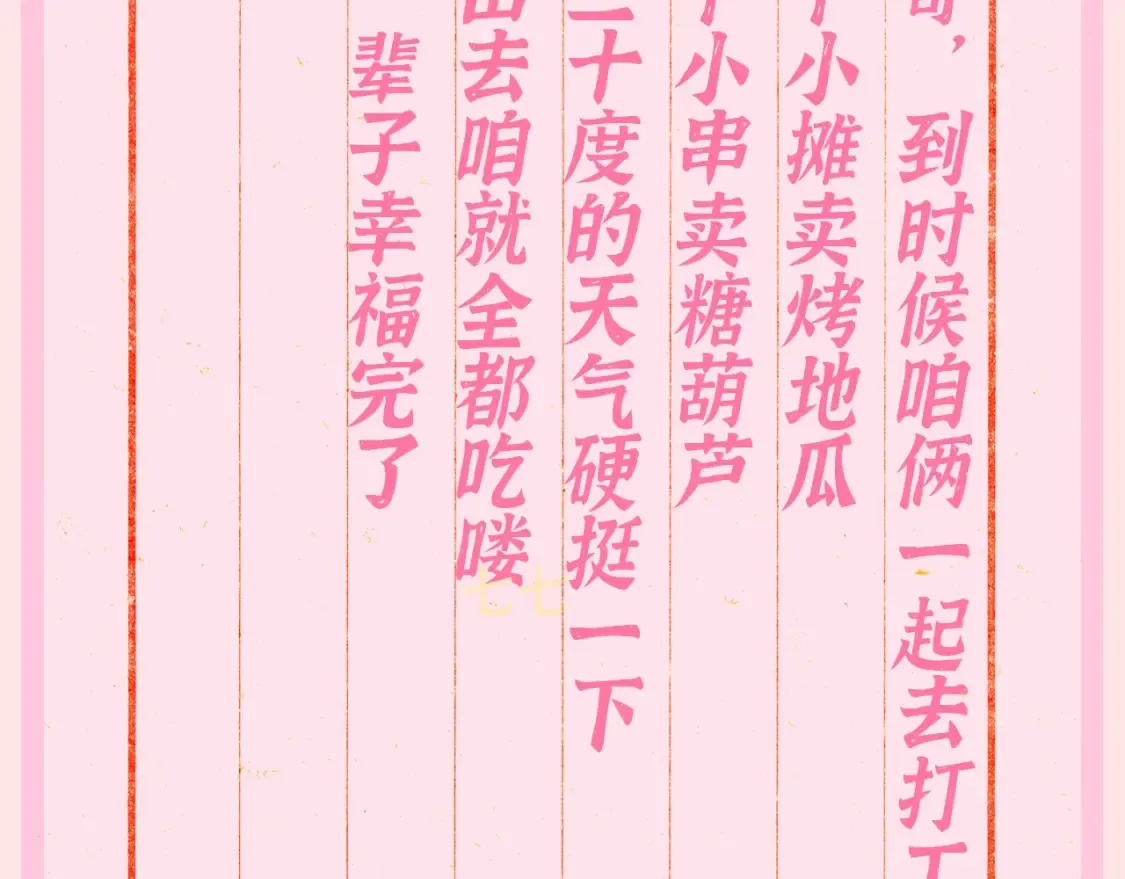 到时候咱俩一起去打工
小摊卖烤地瓜
小串卖糖葫芦
二十度的天气硬挺一下
出去咱就全都吃喽
辈子幸福完了
七七